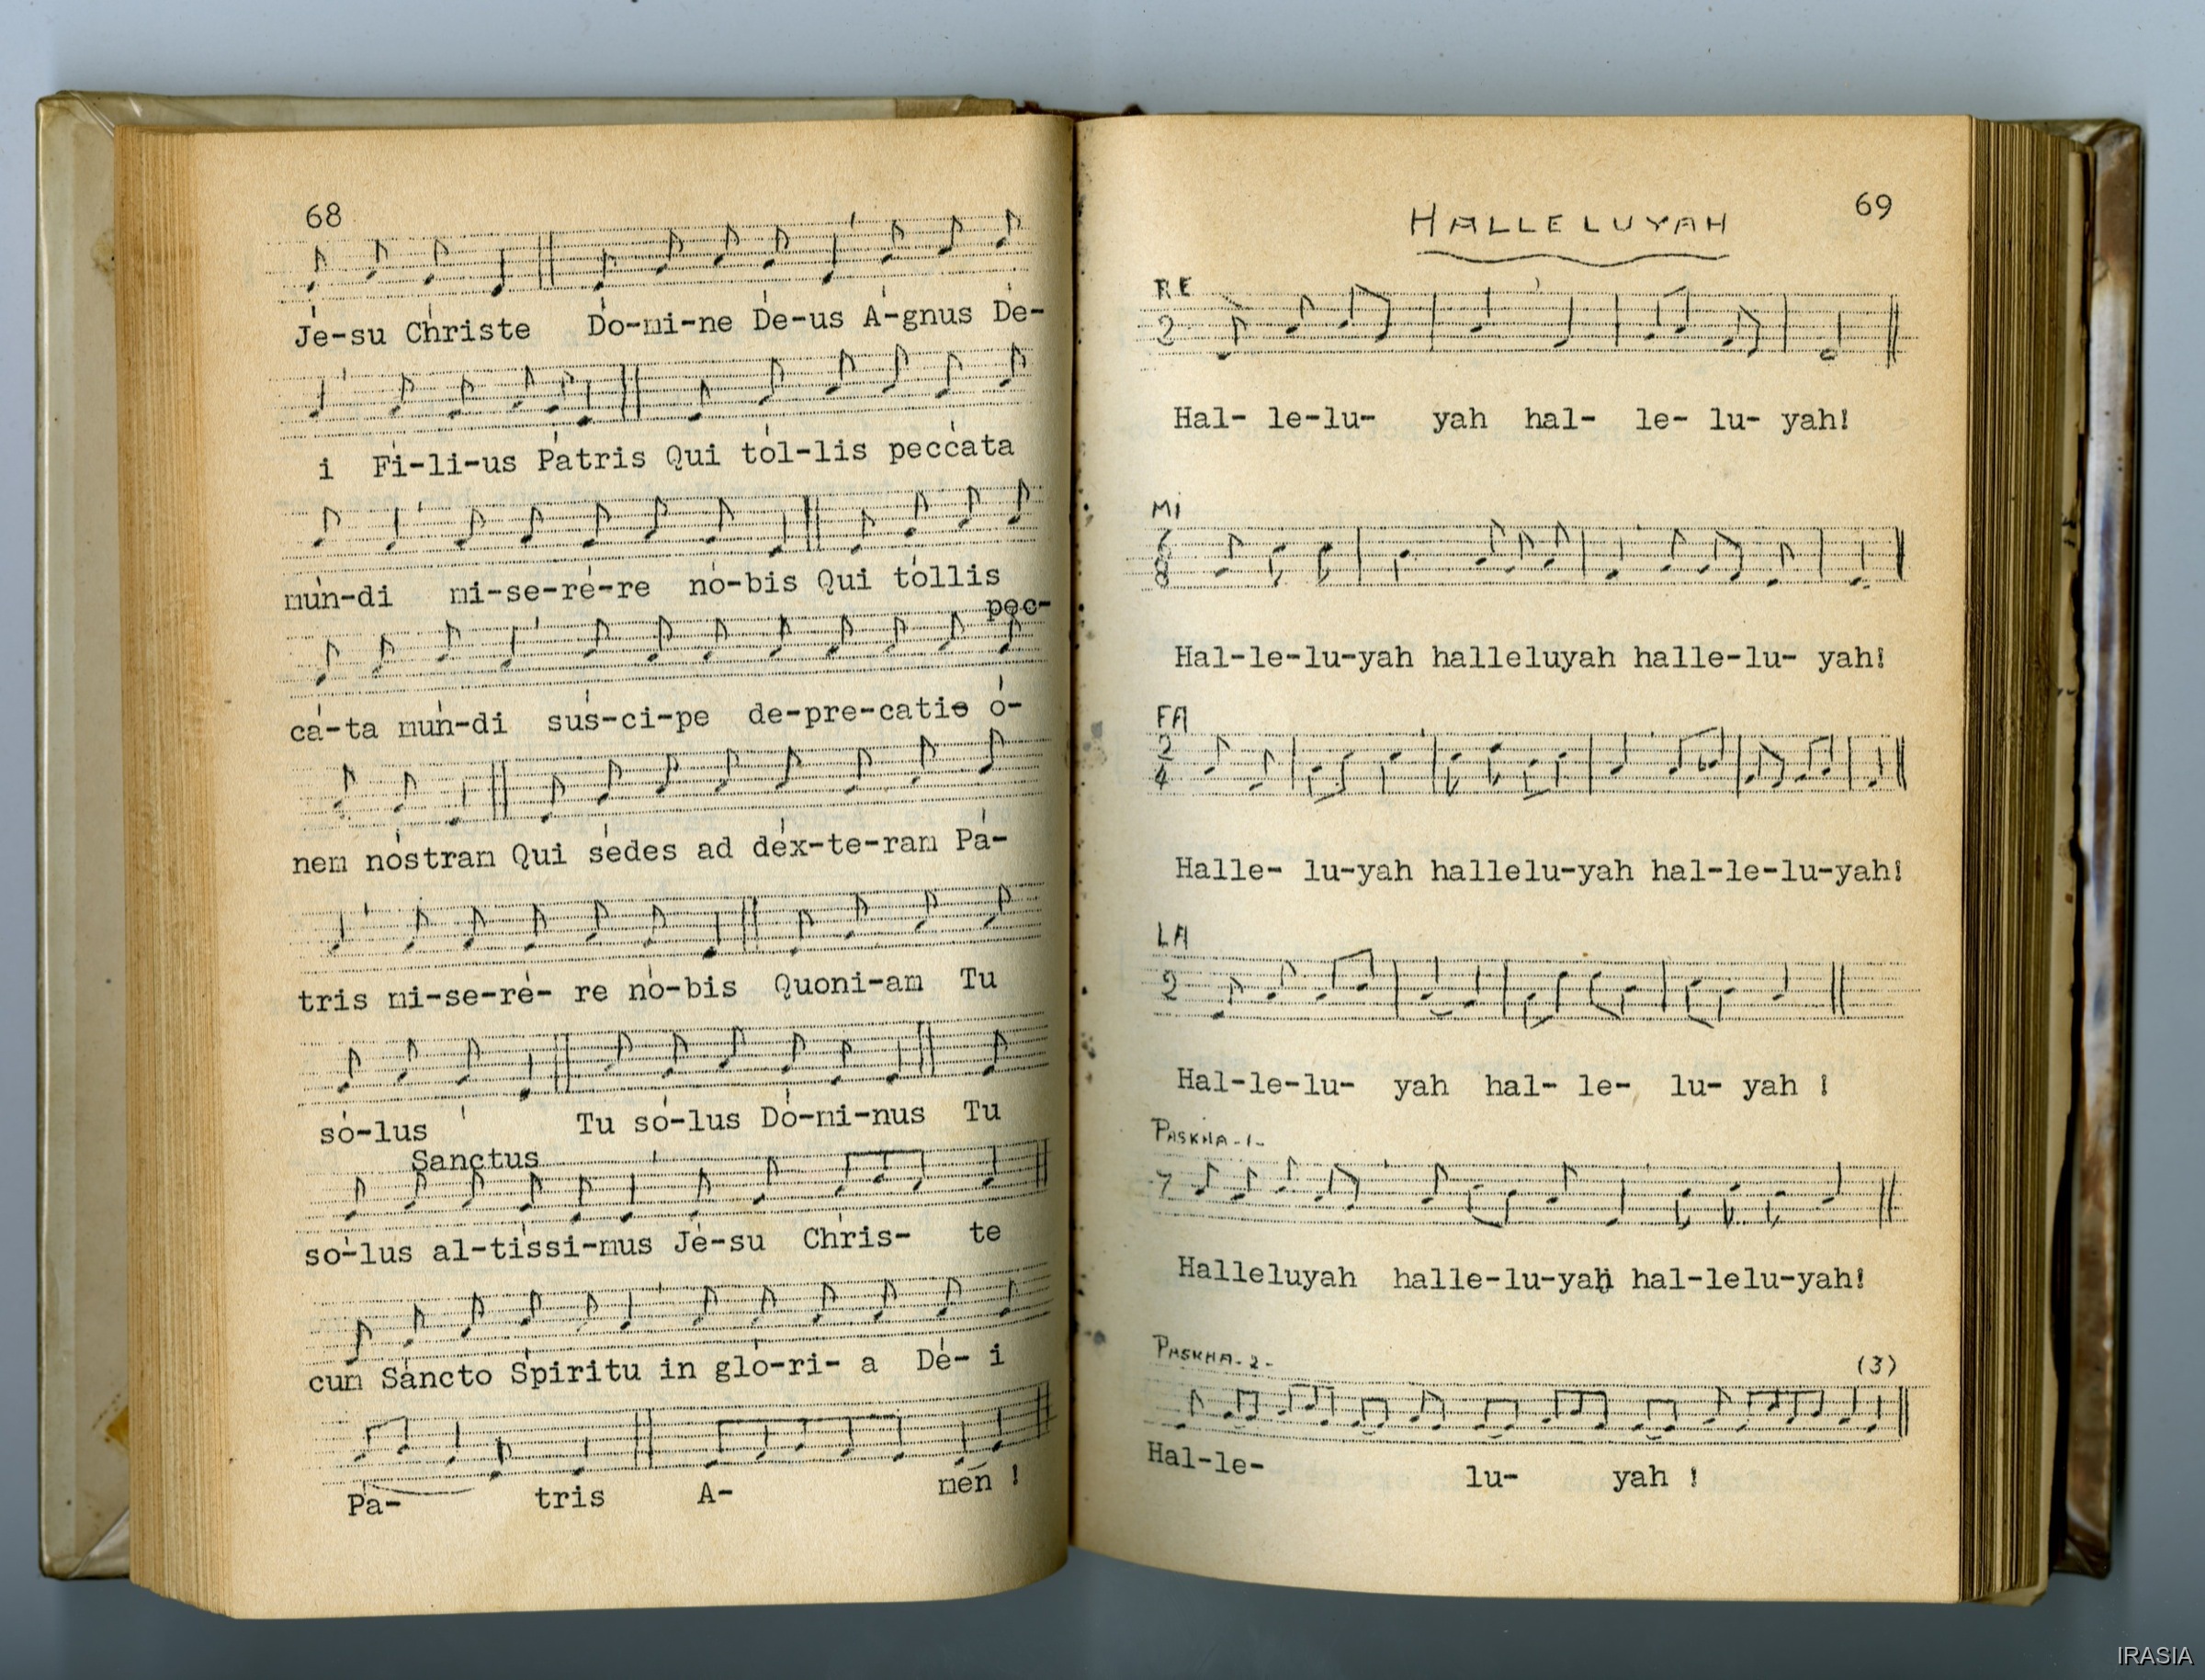 68
Jé-su Christe Dó-mi-ne Dé-us Á-gnus Dé-
i Fí-li-us Pátris Qui tól-lis peccáta
mún-di mi-se-ré-re nó-bis Qui tóllis
pec-
cá-ta mún-di sús-ci-pe de-pre-catio ó-
nem nóstram Qui sédes ad déx-te-ram Pá-
tris mi-se-ré- re nó-bis Quóni-am Tu
só-lus Tu só-lus Dó-mi-nus Tu
Sanctus
só-lus al-tíssi-mus Jé-su Chrís- te
cum Sáncto Spíritu in gló-ri- a Dé- i
Pa- tris A- men !
69
HALLELUYAH
RE
2
Hal- le-lu- yah hal- le- lu- yah!
Mi
6
8
Hal-le-lu-yah halleluyah halle-lu- yah!
FA
2
4
Halle- lu-yah hallelu-yah hal-le-lu-yah!
LA
2
Hal-le-lu- yah hal- le- lu- yah !
PASKHA-1-
7
Halleluyah halle-lu-yah hal-lelu-yah!
PASKHA-2-
(3)
Hal-le- lu- yah !
IRASIA